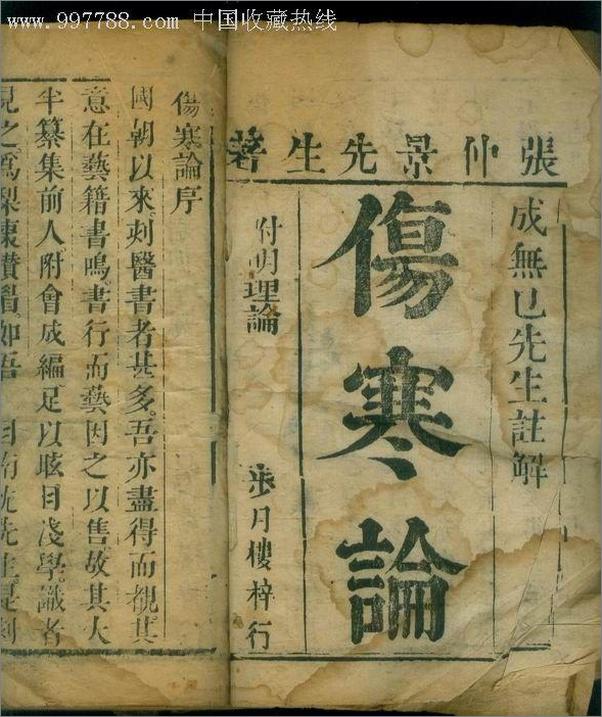 www.997788.com 中国收藏热线
張仲景先生著
成無已先生註解
傷寒論
附明理論
步月樓梓行
傷寒論序
國朝以來。刻醫書者甚多。吾亦盡得而覩其
意在藝籍書鳴。書行而藝因之以售。故其大
半纂集前人附會成編。足以眩目淺學。識者
見之。爲梨棗讚